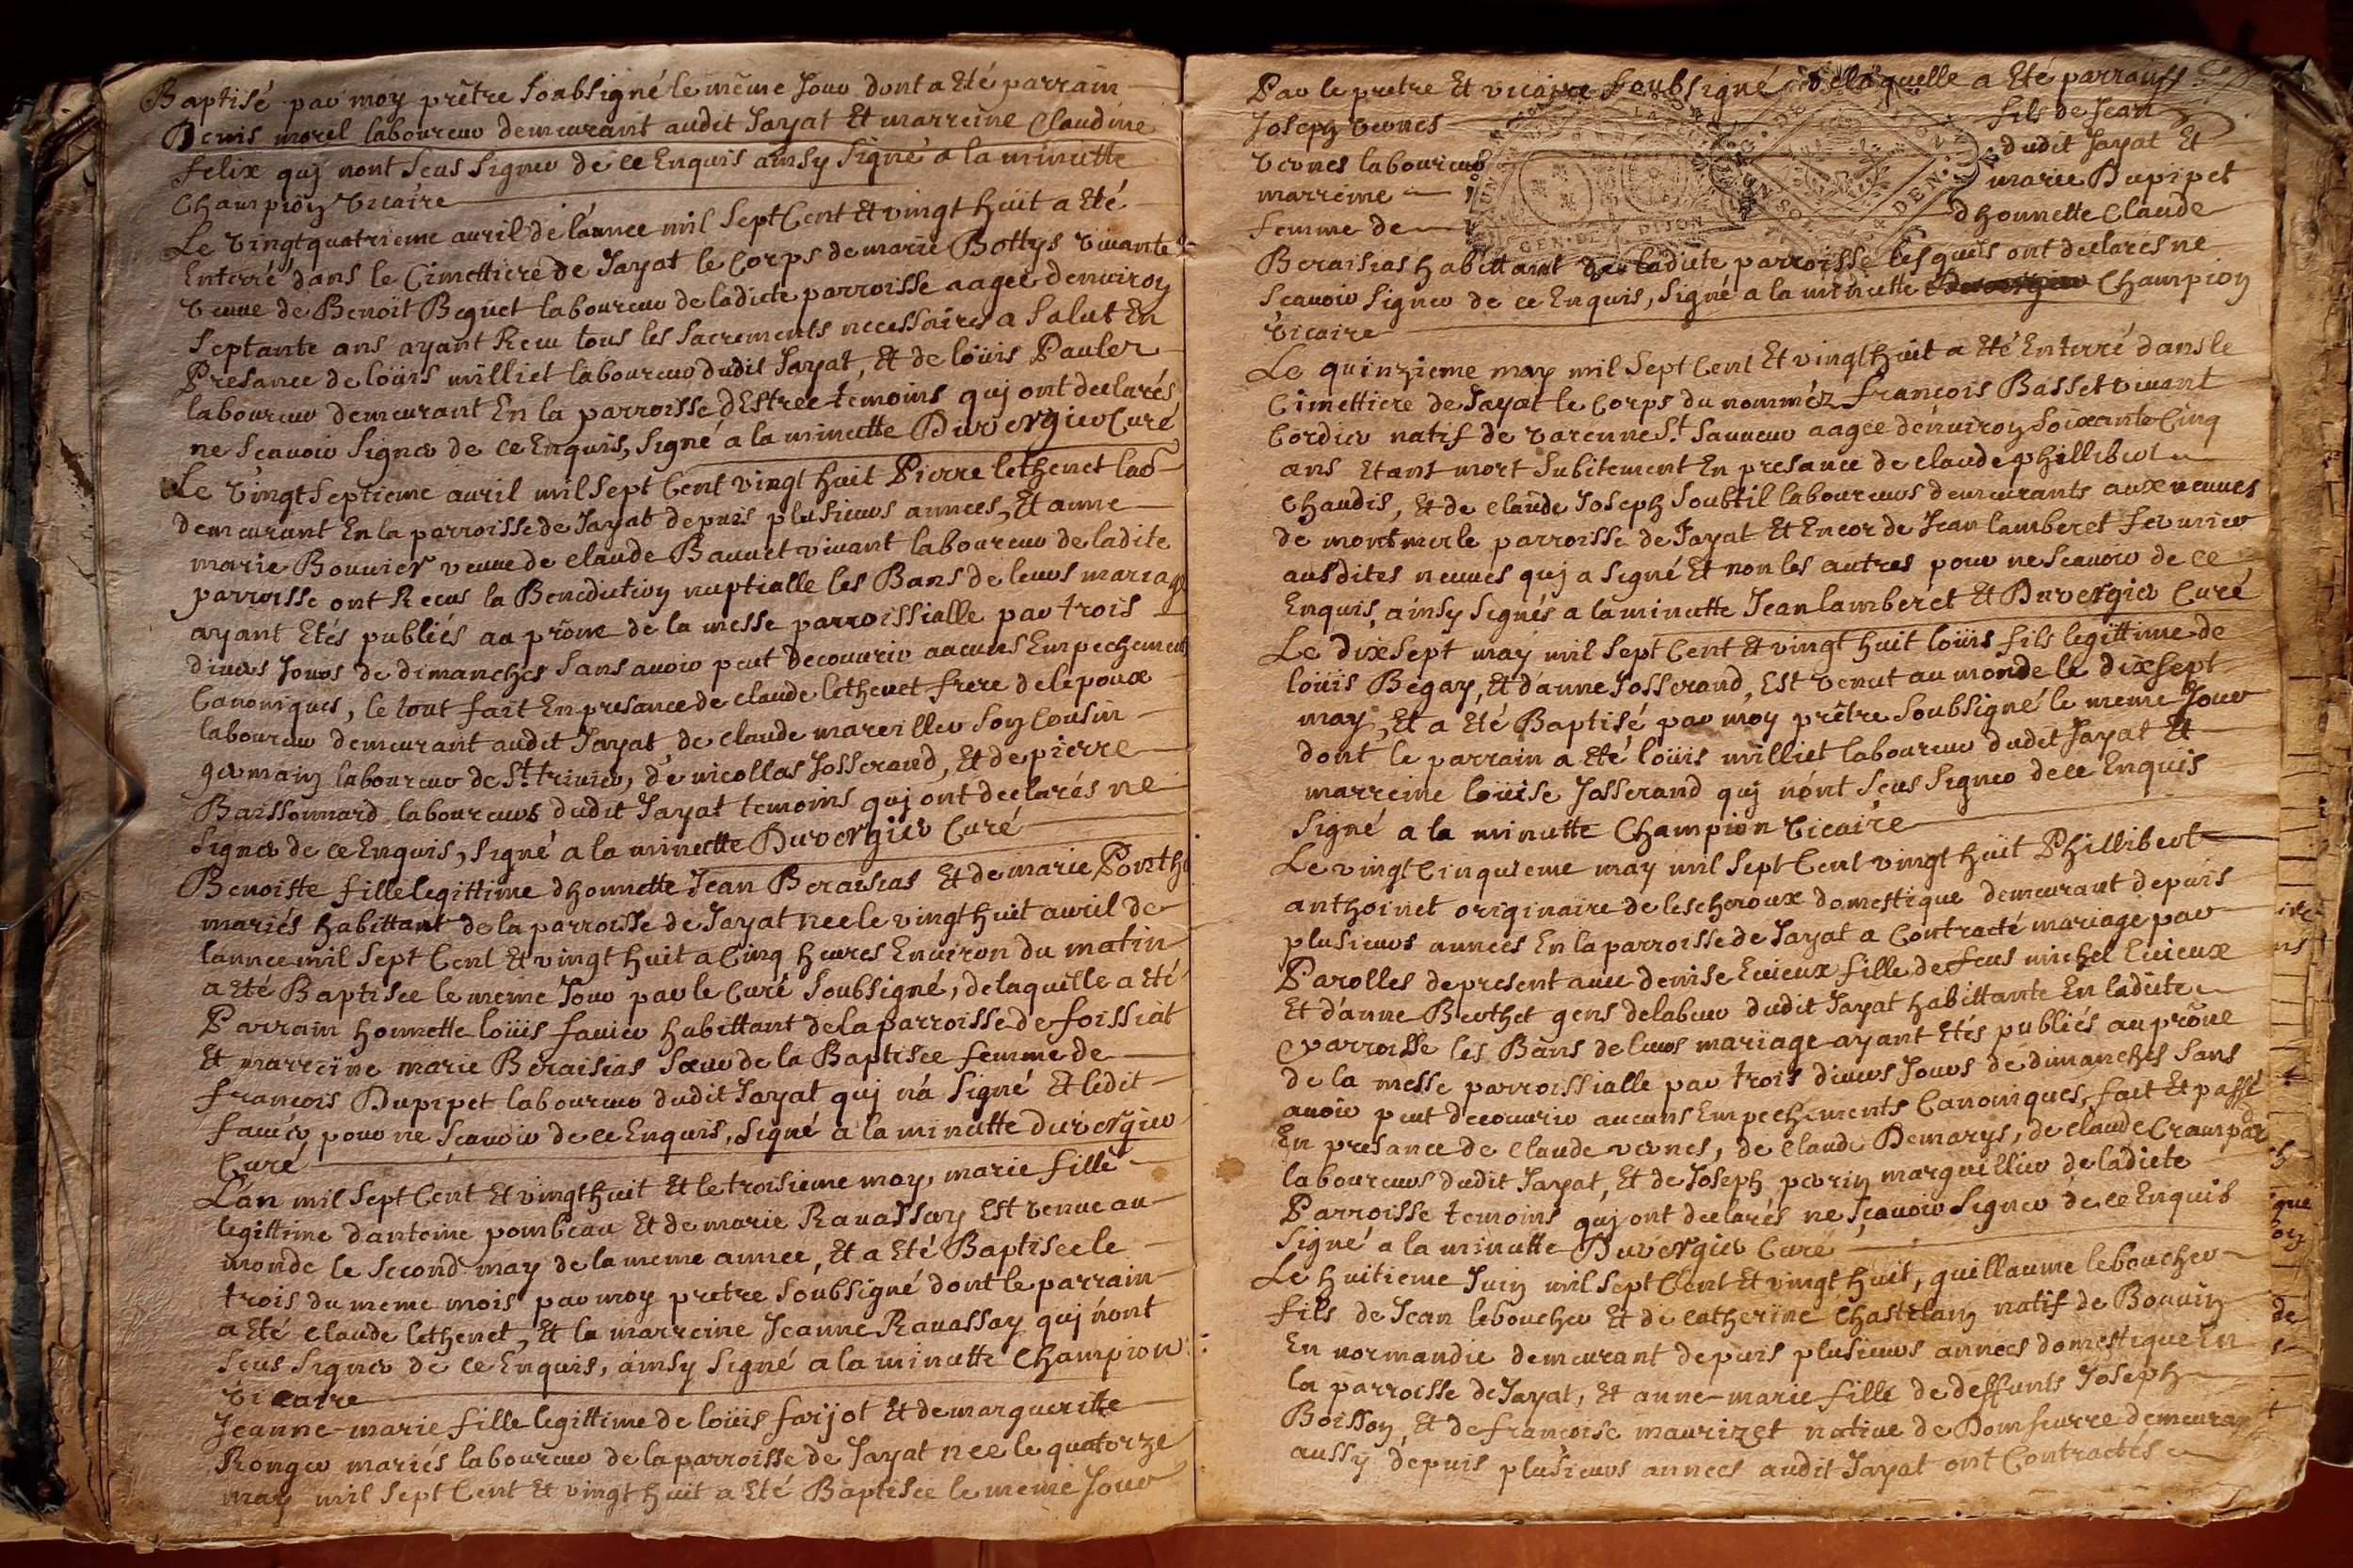 Baptisé par moy prêtre Soubsigné le même Jour dont a Eté parrain
Denis morel laboureur demeurant audit Jayat Et marreine Claudine
felix quj nont Sçus Signer de ce Enquis ainsy Signé a la minutte
Champion Vicaire
Le Vingtquatrieme avril de lánnee mil Sept Cent Et vingt huit a Eté
Enterré dans le Cimettiere de Jayat le Corps de marie Bottys vivante
veuve de Benoit Beguet laboureur de ladicte parroisse aagee denviron
Septante ans ayant Reçu tous les Sacrements necessaires a Salut En
Presance de loüis milliet laboureur dudit Jayat, Et de loüis Pauler
laboureur demeurant En la parroisse dEstree temoins quj ont declarés
ne Scavoir Signer de ce Enquis, Signé a la minutte Duvergier Curé
Le vingt Septieme avril mil Sept Cent vingt huit Pierre lethenet lab
demeurant En la parroisse de Jayat depuis plusieurs annees, Et anne
marie Bouvier veuve de claude Bauvet vivant laboureur de ladite
parroisse ont Recus la Benediction nuptialle les Bans de leurs mariag
ayant Etés publiés au prône de la messe parroissialle par trois
divers Jours de dimanches Sans avoir peut decouvrir aucuns Empechement
Canoniques, le tout fait En presance de claude lethenet frere de lepoux
laboureur demeurant audit Jayat, de claude mareillier Son Cousin
germain laboureur de St. trivier, de nicollas Josserand, Et de pierre
Baissonnard laboureurs dudit Jayat temoins quj ont declarés ne
Signer de ce Enquis, Signé a la minutte Duvergier Curé
Benoiste fille legittime dhonnette Jean Beraisias Et de marie Ponth
mariés habittant de la parroisse de Jayat nee le vingt huit avril de
lannee mil Sept Cent Et vingt huit a Cinq heures Environ du matin
a Eté Baptisee le meme Jour par le Curé Soubsigné, de laquelle a Eté
Parrain honnette loüis favier habittant de la parroisse de foissiat
Et marreine marie Beraisias Sœur de la Baptisee femme de
francois Dupipet laboureur dudit Jayat quj ná Signé Et ledit
favier pour ne Sçavoir de ce Enquis, Signé a la minutte duvergier
Curé
Lán mil Sept Cent Et vingt huit Et le troisieme may, marie fille
legittime dantoine pombeau Et de marie Ravassay Est venue au
monde le Second may de la meme annee, Et a Eté Baptisee le
trois du meme mois par moy pretre Soubsigné dont le parrain
a Eté claude lethenet, Et la marreine Jeanne Ravassay quj nónt
Sçus Signer de ce Enquis, ainsy Signé a la minutte Champion
Vicaire
Jeanne-marie fille legittime de loüis farjot Et de margueritte
Ronger mariés laboureur de la parroisse de Jayat née le quatorze
may mil Sept Cent Et vingt huit a Eté Baptisee le meme Jour
Par le pretre Et vicaire Soubsigné de laquelle a Eté parrain
Joseph vernes fils de Jean
vernes laboureur dudit Jayat Et
marreine marie Dupipet
femme de dhonnette Claude
GEN. DE DIJON
Beraisias habittant de ladicte parroisse lesquels ont declarés ne
Scavoir Signer de ce Enquis, Signé a la minutte Champion
Vicaire
Le quinzieme may mil Sept Cent Et vingt huit a Eté Enterré dans le
Cimettiere de Jayat le Corps du nomméz francois Basset vivant
Cordier natif de varenne St. Sauveur aagee denviron Soixante Cinq
ans Etant mort Subitement En presance de claude phillibert
Chaudis, Et de claude Joseph Soubtil laboureurs demeurants aux neuves
de montmerle parroisse de Jayat Et Encor de Jean lamberet fermier
ausdites neuves quj a Signé Et non les autres pour ne Scavoir de ce
Enquis, ainsy Signés a la minutte Jean lamberet Et Duvergier Curé
Le dixsept may mil Sept Cent Et vingt huit loüis fils legittime de
loüis Begay, Et dánne Josserand, Est venut au monde le dixsept
may, Et a Eté Baptisé par moy prêtre Soubsigné le meme Jour
dont le parrain a Eté loüis milliet laboureur dudit Jayat Et
marreine loüise Josserand quj nónt Sçus Signer de ce Enquis
Signé a la minutte Champion Vicaire
Le vingt Cinquieme may mil Sept Cent vingt huit Phillibert
anthoinet originaire de lescheroux domestique demeurant depuis
plusieurs annees En la parroisse de Jayat a Contracté mariage par
Parolles de present avec denise Evieux fille de feus michel Evieux
Et dánne Berthet gens de labeur dudit Jayat habittante En ladicte
parroisse les Bans de leurs mariage ayant Etés publiés au prône
de la messe parroissialle par trois divers Jours de dimanches Sans
avoir peut decouvrir aucuns Empechements Canoniques, fait Et passé
En presance de claude vernes, de claude Demarys, de claude
laboureurs dudit Jayat, Et de Joseph perin marguillier de ladicte
Parroisse temoins quj ont declarés ne Sçavoir Signer de ce Enquis
Signé a la minutte Duvergier Curé
Le huitieme Juin mil Sept Cent Et vingt huit, guillaume leboucher
fils de Jean leboucher Et de catherine Chastelain natif de Bouvin
En normandie demeurant depuis plusieurs annees domestique En
la parroisse de Jayat, Et anne-marie fille de deffunts Joseph
Boisson, Et de francoise maurizet native de Domseurre demeurant
aussy depuis plusieurs annees audit Jayat ont Contractés